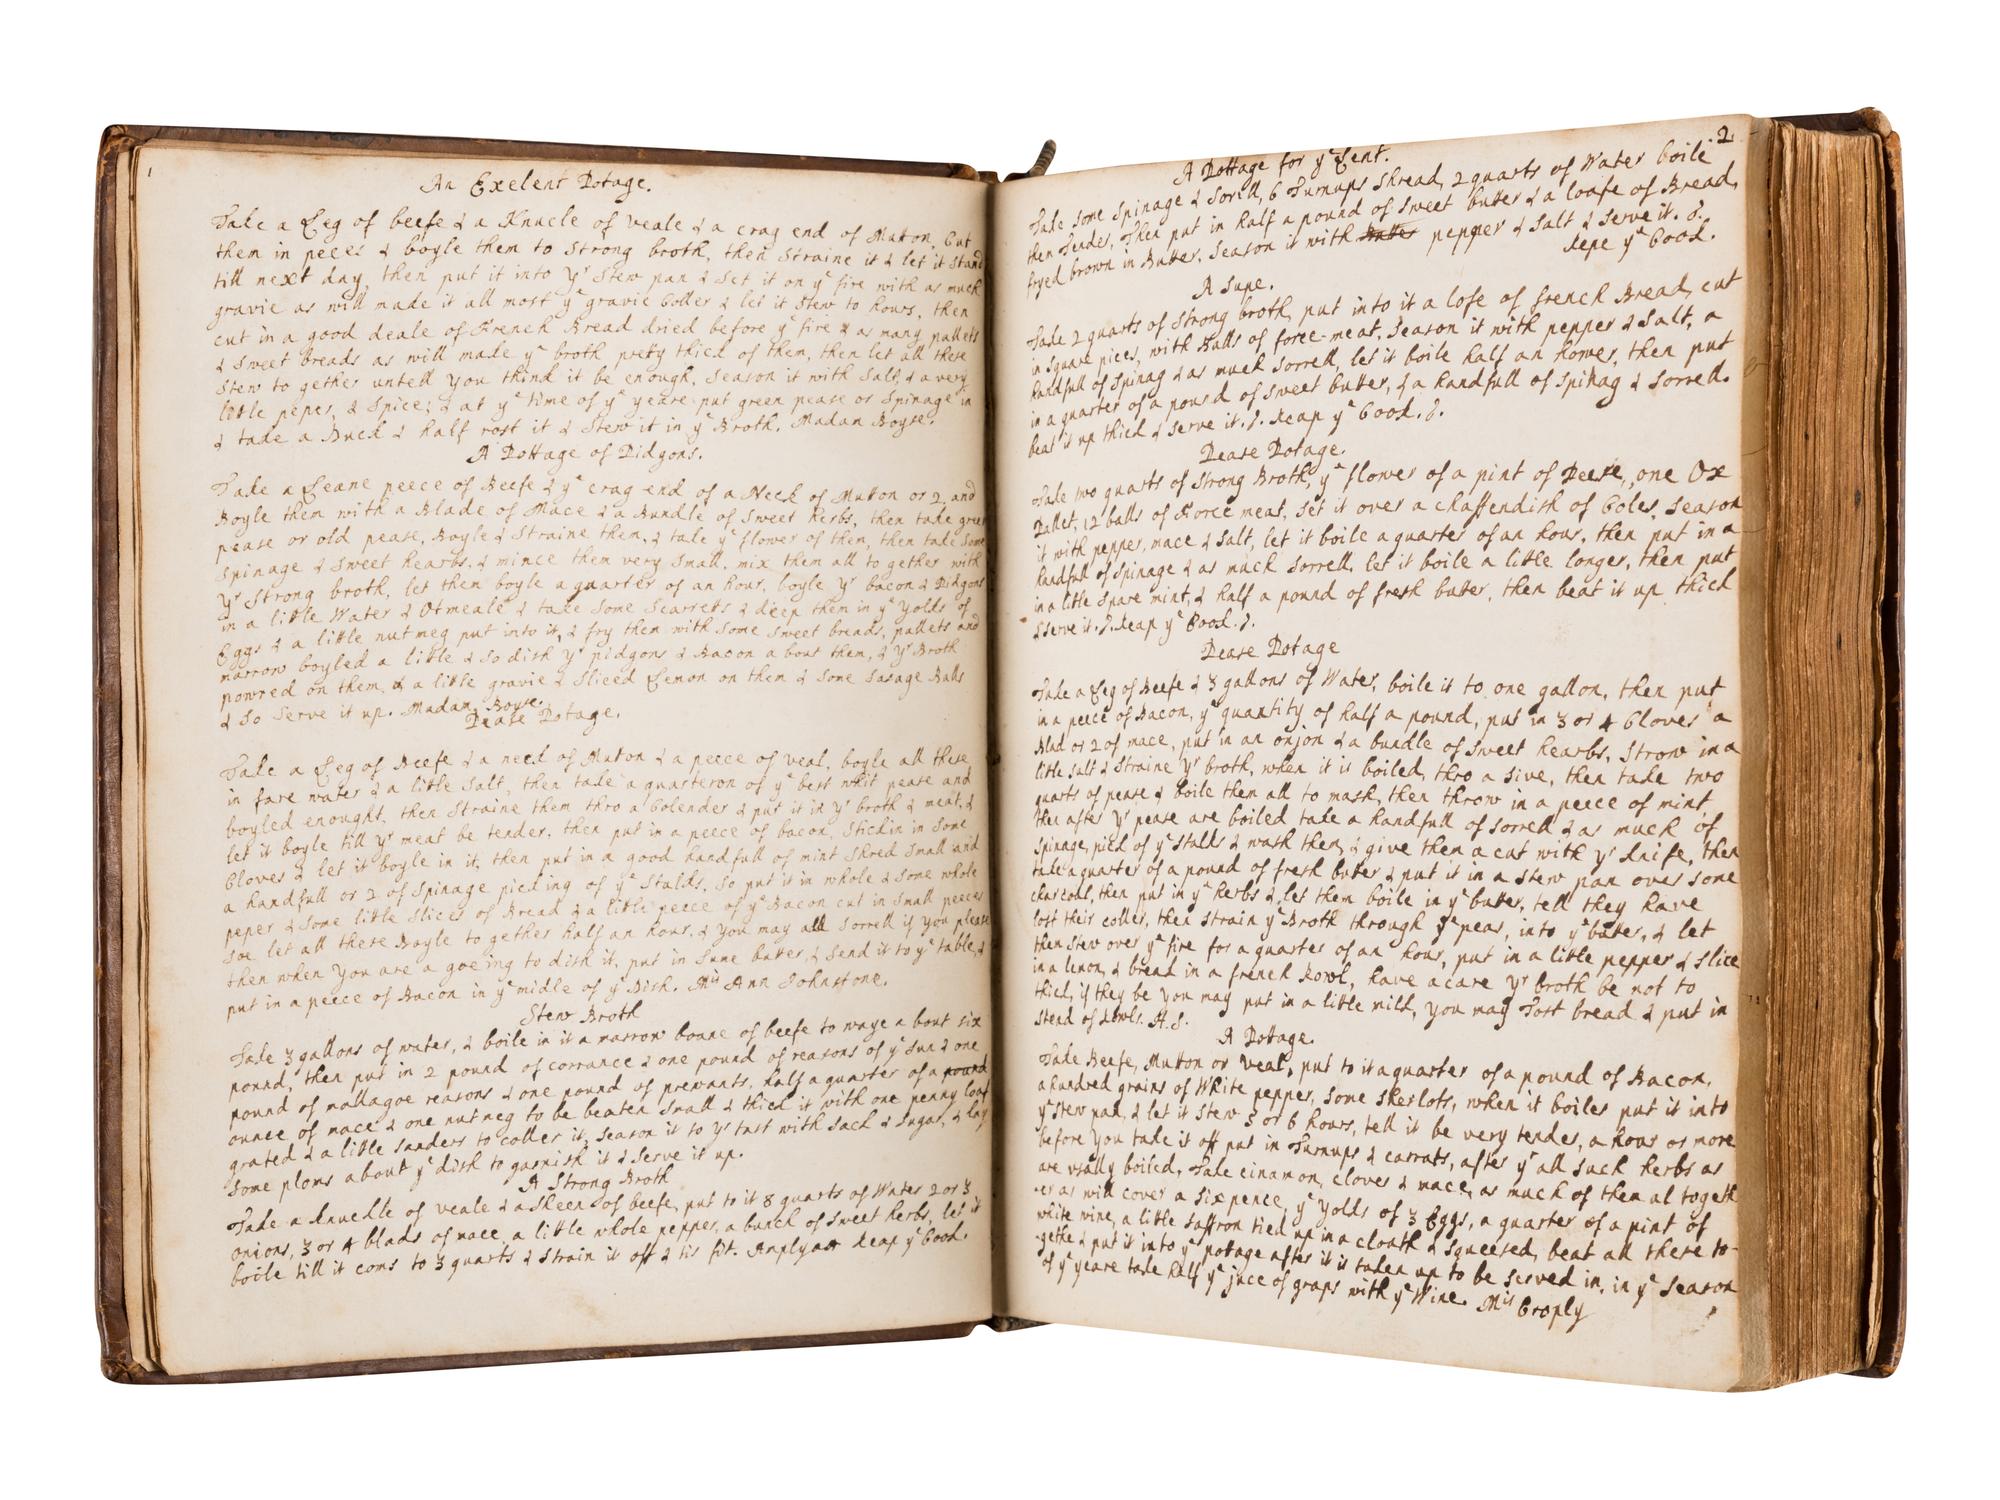 1
An Exelent Potage.
Take a Leg of beefe & a Knucle of veale & a crag end of Mutton, Cut
them in peces & boyle them to strong broth, then Straine it & let it stand
till next day, then put it into yr Stew pan & Set it on ye fire with as much
gravie as will made it all most ye gravie Coller & let it Stew to hours, then
cut in a good deale of French Bread dried before ye fire & as many pallets
& Sweet breads as will made ye broth pretty thick of them, then let all these
Stew to gether untell you think it be enough, Season it with Salt, & a very
little peper, & Spice; & at ye time of ye yeare put green pease or Spinage in
& take a Duck & half rost it & Stew it in ye Broth. Madam Boyse.
A Pottage of Pidgons.
Take a Leane peece of Beefe & ye crag end of a Neck of Mutton or 2, and
Boyle them with a Blade of Mace & a Bundle of Sweet herbs, then take green
pease or old pease, Boyle & Straine them, & take ye flower of them, then take Some
Spinage & Sweet hearbs, & mince them very Small, mix them all to gether with
Yr Strong broth, let them boyle a quarter of an hour, boyle yr bacon & Pidgons
in a little Water & Otmeale & take Some Scarretts & deep them in ye Yolks of
Eggs & a little nutmeg put into it, & fry them with Some Sweet breads, pallets and
marrow boyled a little & So dish yr pidgons & Bacon a bout them, & yr Broth
powred on them, & a little gravie & Sliced Lemon on them & Some Sasage Balls
& So Serve it up. Madam Boyse.
Pease Potage.
Take a Leg of Beefe & a neck of Mutton & a peece of veal, boyle all these
in fare water & a little Salt, then take a quarteron of ye best whit pease and
boyled enought, then Straine them thro a Colender & put it in yr broth & meat, &
let it boyle till yr meat be tender, then put in a peece of bacon, Stickin in Some
Cloves & let it boyle in it, then put in a good handfull of mint Shred Small and
a handfull or 2 of Spinage picking of ye Stalks, So put it in whole & Some whole
peper & Some little Slices of Bread & a little peece of ye Bacon cut in Small peeces
Soe let all these Boyle to gether half an hour, & you may all Sorrell if you please
then when you are a goeing to dish it, put in Sume buter, & Send it to ye table, &
put in a peece of Bacon in ye midle of ye Dish. Mis Ann Johnstone.
Stew Broth
Take 3 gallons of water, & boile in it a marrow boane of beefe to waye a bout six
pound, then put in 2 pound of corrance & one pound of reasons of ye Sun & one
pound of mallagoe reasons & one pound of prewants, half a quarter of a pound
ounce of mace & one nutmeg to be beaten Small & thick it with one penny loaf
grated & a little Sanders to coller it, Season it to yr tast with Sack & Sugar, & lay
Some ploms about ye dish to garnish it & Serve it up.
A Strong Broth
Take a knuckle of veale & a Skeen of beefe, put to it 8 quarts of Water 2 or 3
onions, 3 or 4 blads of mace, a little whole pepper, a bunch of Sweet herbs, let it
boile till it coms to 3 quarts & Strain it off & tis fit. Keap ye Cook.
2
A Pottage for ye Lent.
Take Some Spinage & Sorill, 6 Turnups Shread, 2 quarts of Water boile
them Tender, Then put in half a pound of Sweet butter & a loafe of Bread,
fryed brown in Butter, Season it with Butter pepper & Salt & Serve it.
Kepe ye Cook.
A Supe.
Take 2 quarts of Strong broth, put into it a lofe of french Bread, cut
in Square pices, with Balls of force-meat, Season it with pepper & Salt, a
handfull of Spinag & as much Sorrell, let it boile half an hower, then put
in a quarter of a pound of Sweet butter, & a handfull of Spinag & Sorrell.
beat it up thick & Serve it. Keap ye Cook.
Pease Potage.
Take two quarts of Strong Broth, ye flower of a pint of Pease, one Ox
Pallet, 12 balls of Force meat, Set it over a chaffendish of Coles, Season
it with pepper, mace & Salt, let it boile a quarter of an hour, then put in a
handfull of Spinage & as much Sorrell, let it boile a little longer, then put
in a little Spare mint, & half a pound of fresh butter, then beat it up thick
& Serve it. Keap ye Cook.
Pease Potage
Take a Leg of Beefe & 3 gallons of Water, boile it to one gallon, then put
in a peece of Bacon, ye quantity of half a pound, put in 3 or 4 Cloves a
Blad or 2 of mace, put in an onjon & a bundle of Sweet hearbs, Strow in a
little Salt & Straine yr broth, when it is boiled, thro a Sive, then take two
quarts of pease & boile them all to mash, then throw in a peece of mint
then after yr pease are boiled take a handfull of Sorrell & as much of
Spinage, pick of ye Stalks & wash them, & give them a cut with yr knife, then
take a quarter of a pound of fresh buter & put it in a Stew pan over Some
charcoal, then put in ye herbs & let them boile in ye butter, tell they have
lost their coller, then Strain ye Broth through ye peas, into ye butter, & let
them Stew over ye fire for a quarter of an hour, put in a little pepper & Slice
in a lemon, & bread in a french Rowl, have a care yr broth be not to
thick, if they be you may put in a little milk, you may Tost bread & put in
Stead of Rowls. A.S.
A Pottage.
Take Beefe, Mutton or Veal, put to it a quarter of a pound of Bacon,
a hundred grains of White pepper, Some Sherlots, when it boiles put it into
ye Stew pan, & let it Stew 5 or 6 hours, tell it be very tender, a hour or more
before you take it off put in Turnups & carrats, after ye all Such herbs as
are usally boiled, Take cinamon, cloves & mace, as much of them al togeth
-er as will cover a Six pence, ye Yolks of 3 Eggs, a quarter of a pint of
white wine, a little Saffron tied up in a cloath & Squeesed, beat all these to-
-gethe & put it into ye potage after it is taken up to be Served in, in ye Season
of ye yeare take half ye juce of graps with ye Wine. Mis Croply